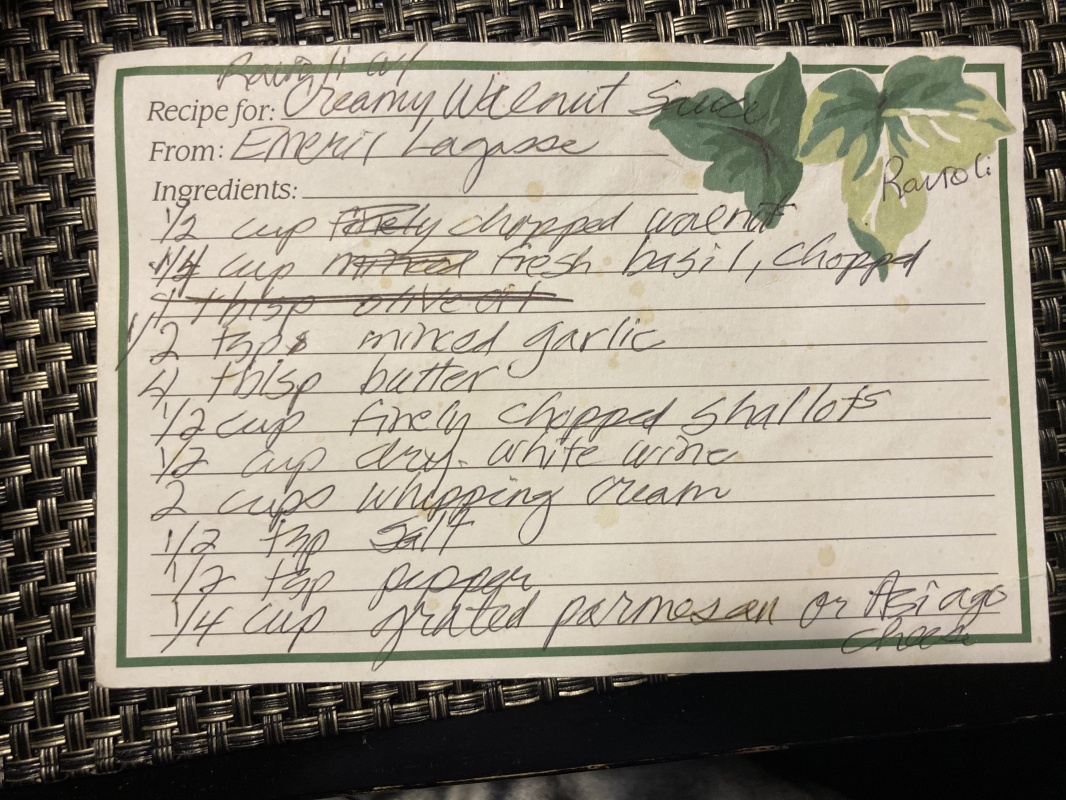 Ravioli w/
Recipe for: Creamy Walnut Sauce
From: Emeril Lagasse
Ravioli
Ingredients:
1/2 cup finely chopped walnut
1/4 cup minced fresh basil, chopped
1 tblsp olive oil
1/2 tsps minced garlic
4 tblsp butter
1/2 cup finely chopped shallots
1/2 cup dry white wine
2 cups whipping cream
1/2 tsp salt
1/2 tsp pepper
1/4 cup grated parmesan or Asiago
cheese